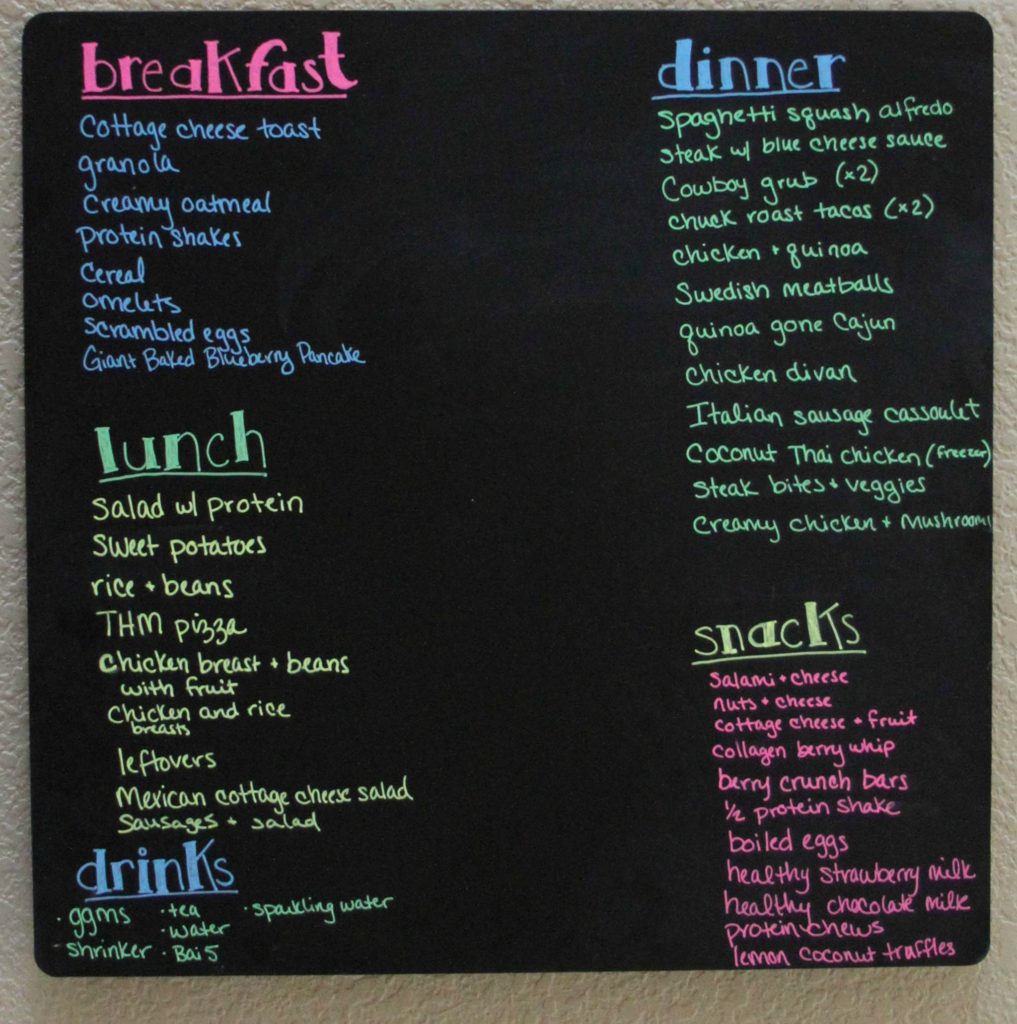 breakfast
Cottage cheese toast
granola
Creamy oatmeal
Protein shakes
Cereal
omelets
Scrambled eggs
Giant Baked Blueberry Pancake
lunch
Salad w/ protein
Sweet potatoes
rice + beans
THM pizza
Chicken breast + beans
with fruit
Chicken and rice
breasts
leftovers
Mexican cottage cheese salad
Sausages + salad
drinks
· ggms · tea · sparkling water
· water
· shrinker · Bai 5
dinner
Spaghetti squash alfredo
Steak w/ blue cheese sauce
Cowboy grub (x2)
chuck roast tacos (x2)
chicken + quinoa
Swedish meatballs
quinoa gone Cajun
Chicken divan
Italian sausage cassoulet
Coconut Thai chicken (freezer)
Steak bites + veggies
Creamy chicken + Mushroom
snacks
Salami + cheese
nuts + cheese
cottage cheese + fruit
collagen berry whip
berry crunch bars
1/2 protein shake
boiled eggs
healthy strawberry milk
healthy chocolate milk
protein chews
lemon coconut truffles